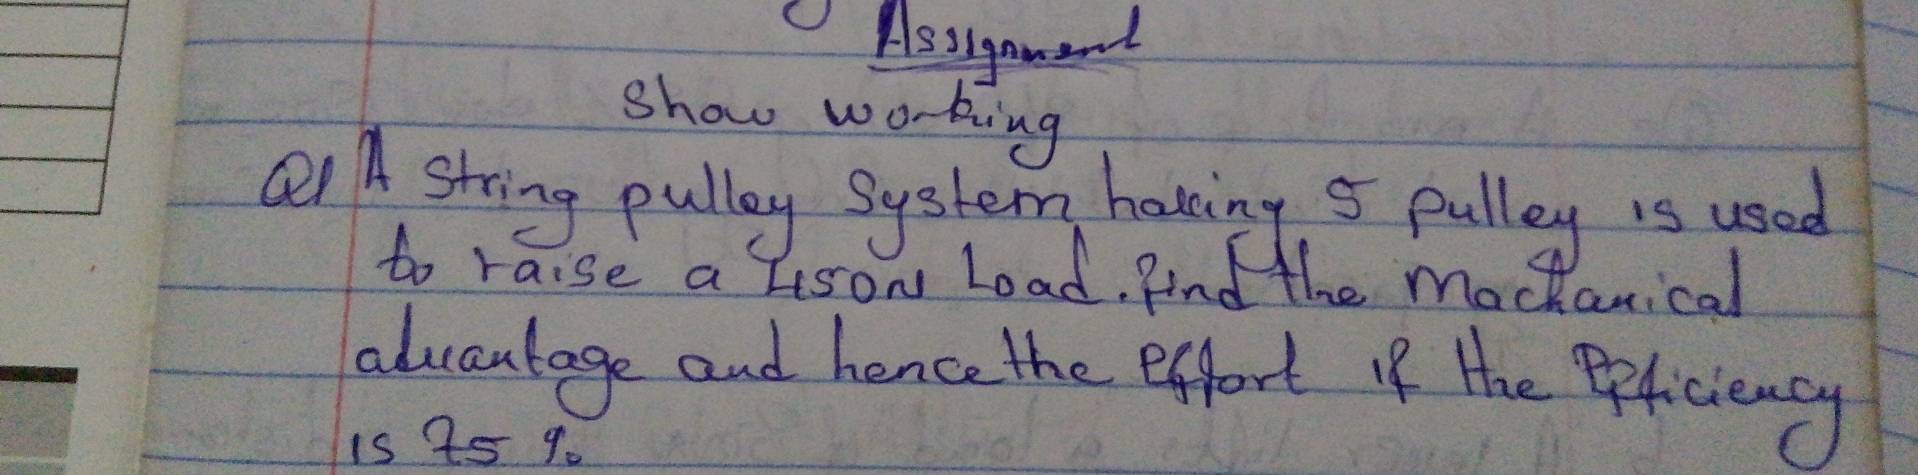 Assignment
Show working
Q1 A string pulley system having 5 pulley is used
to raise a 450N Load. find the Machanical
advantage and hence the Effort if the Efficiency
is 75%